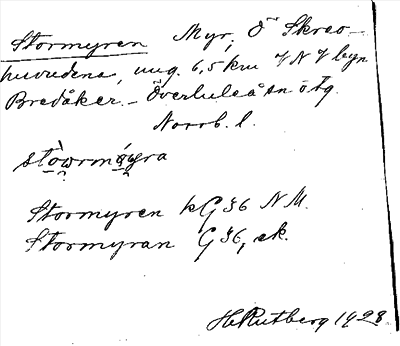 Stormyren Myr, Ö Skrao-
huvudena, ung. 6,5 km N byn
Bredåker. Överluleå sn ö tg
Norrb. l.
Stormyren kG 36 N.M.
Stormyran G 36, ek.
H. Rutberg 1928